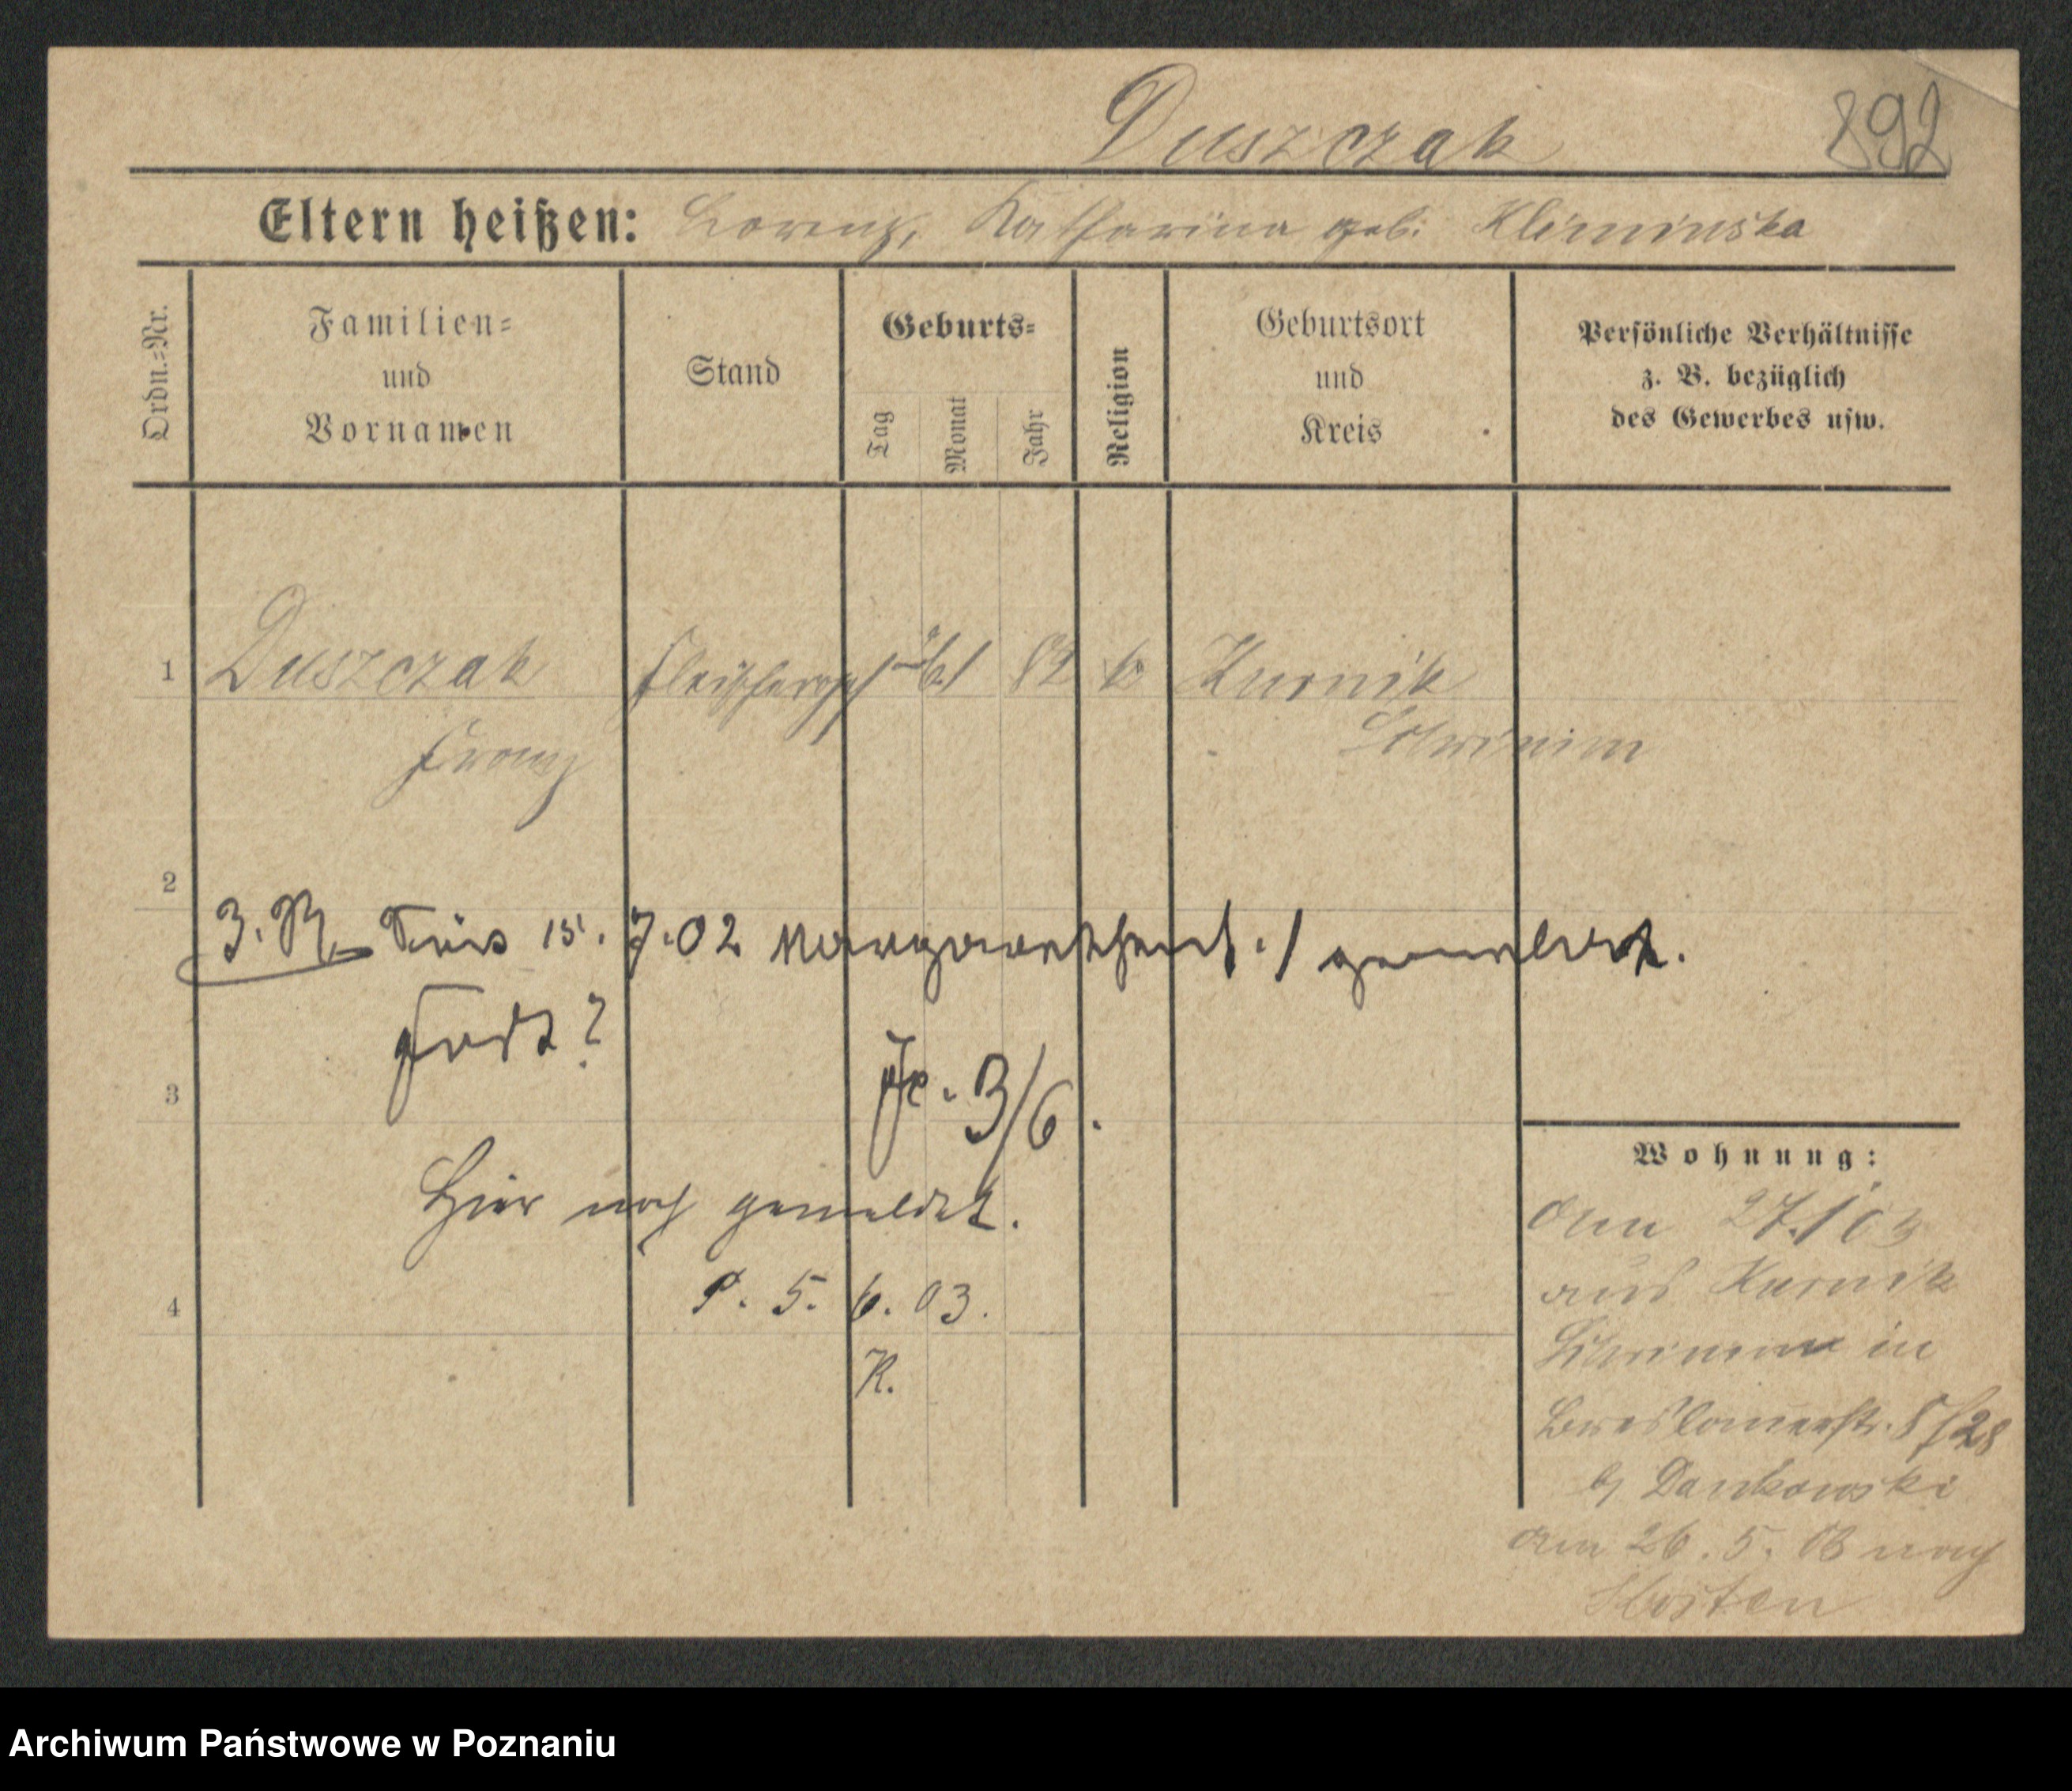 Duszczak 892
Eltern heißen: Lorenz, Katharina geb. Kliminska
Ordn.=Nr.
Familien=
und
Vornamen
Stand
Geburts=
Tag
Monat
Jahr
Religion
Geburtsort
und
Kreis
Persönliche Verhältnisse
z. B. bezüglich
des Gewerbes usw.
1 Duszczak Fleischerges 82 k Kurnik
Franz Schrimm
2
15. 7.02 gemeldet.
fort?
3
3/6.
Hier noch gemeldet.
4
P. 5. 6. 03.
K.
Wohnung:
am 27./ 03
aus Kurnik
Schrimm in
Breslauerstr. 28
b/ Dankowski
am 26. 5. 03 nach
Kosten
Archiwum Państwowe w Poznaniu